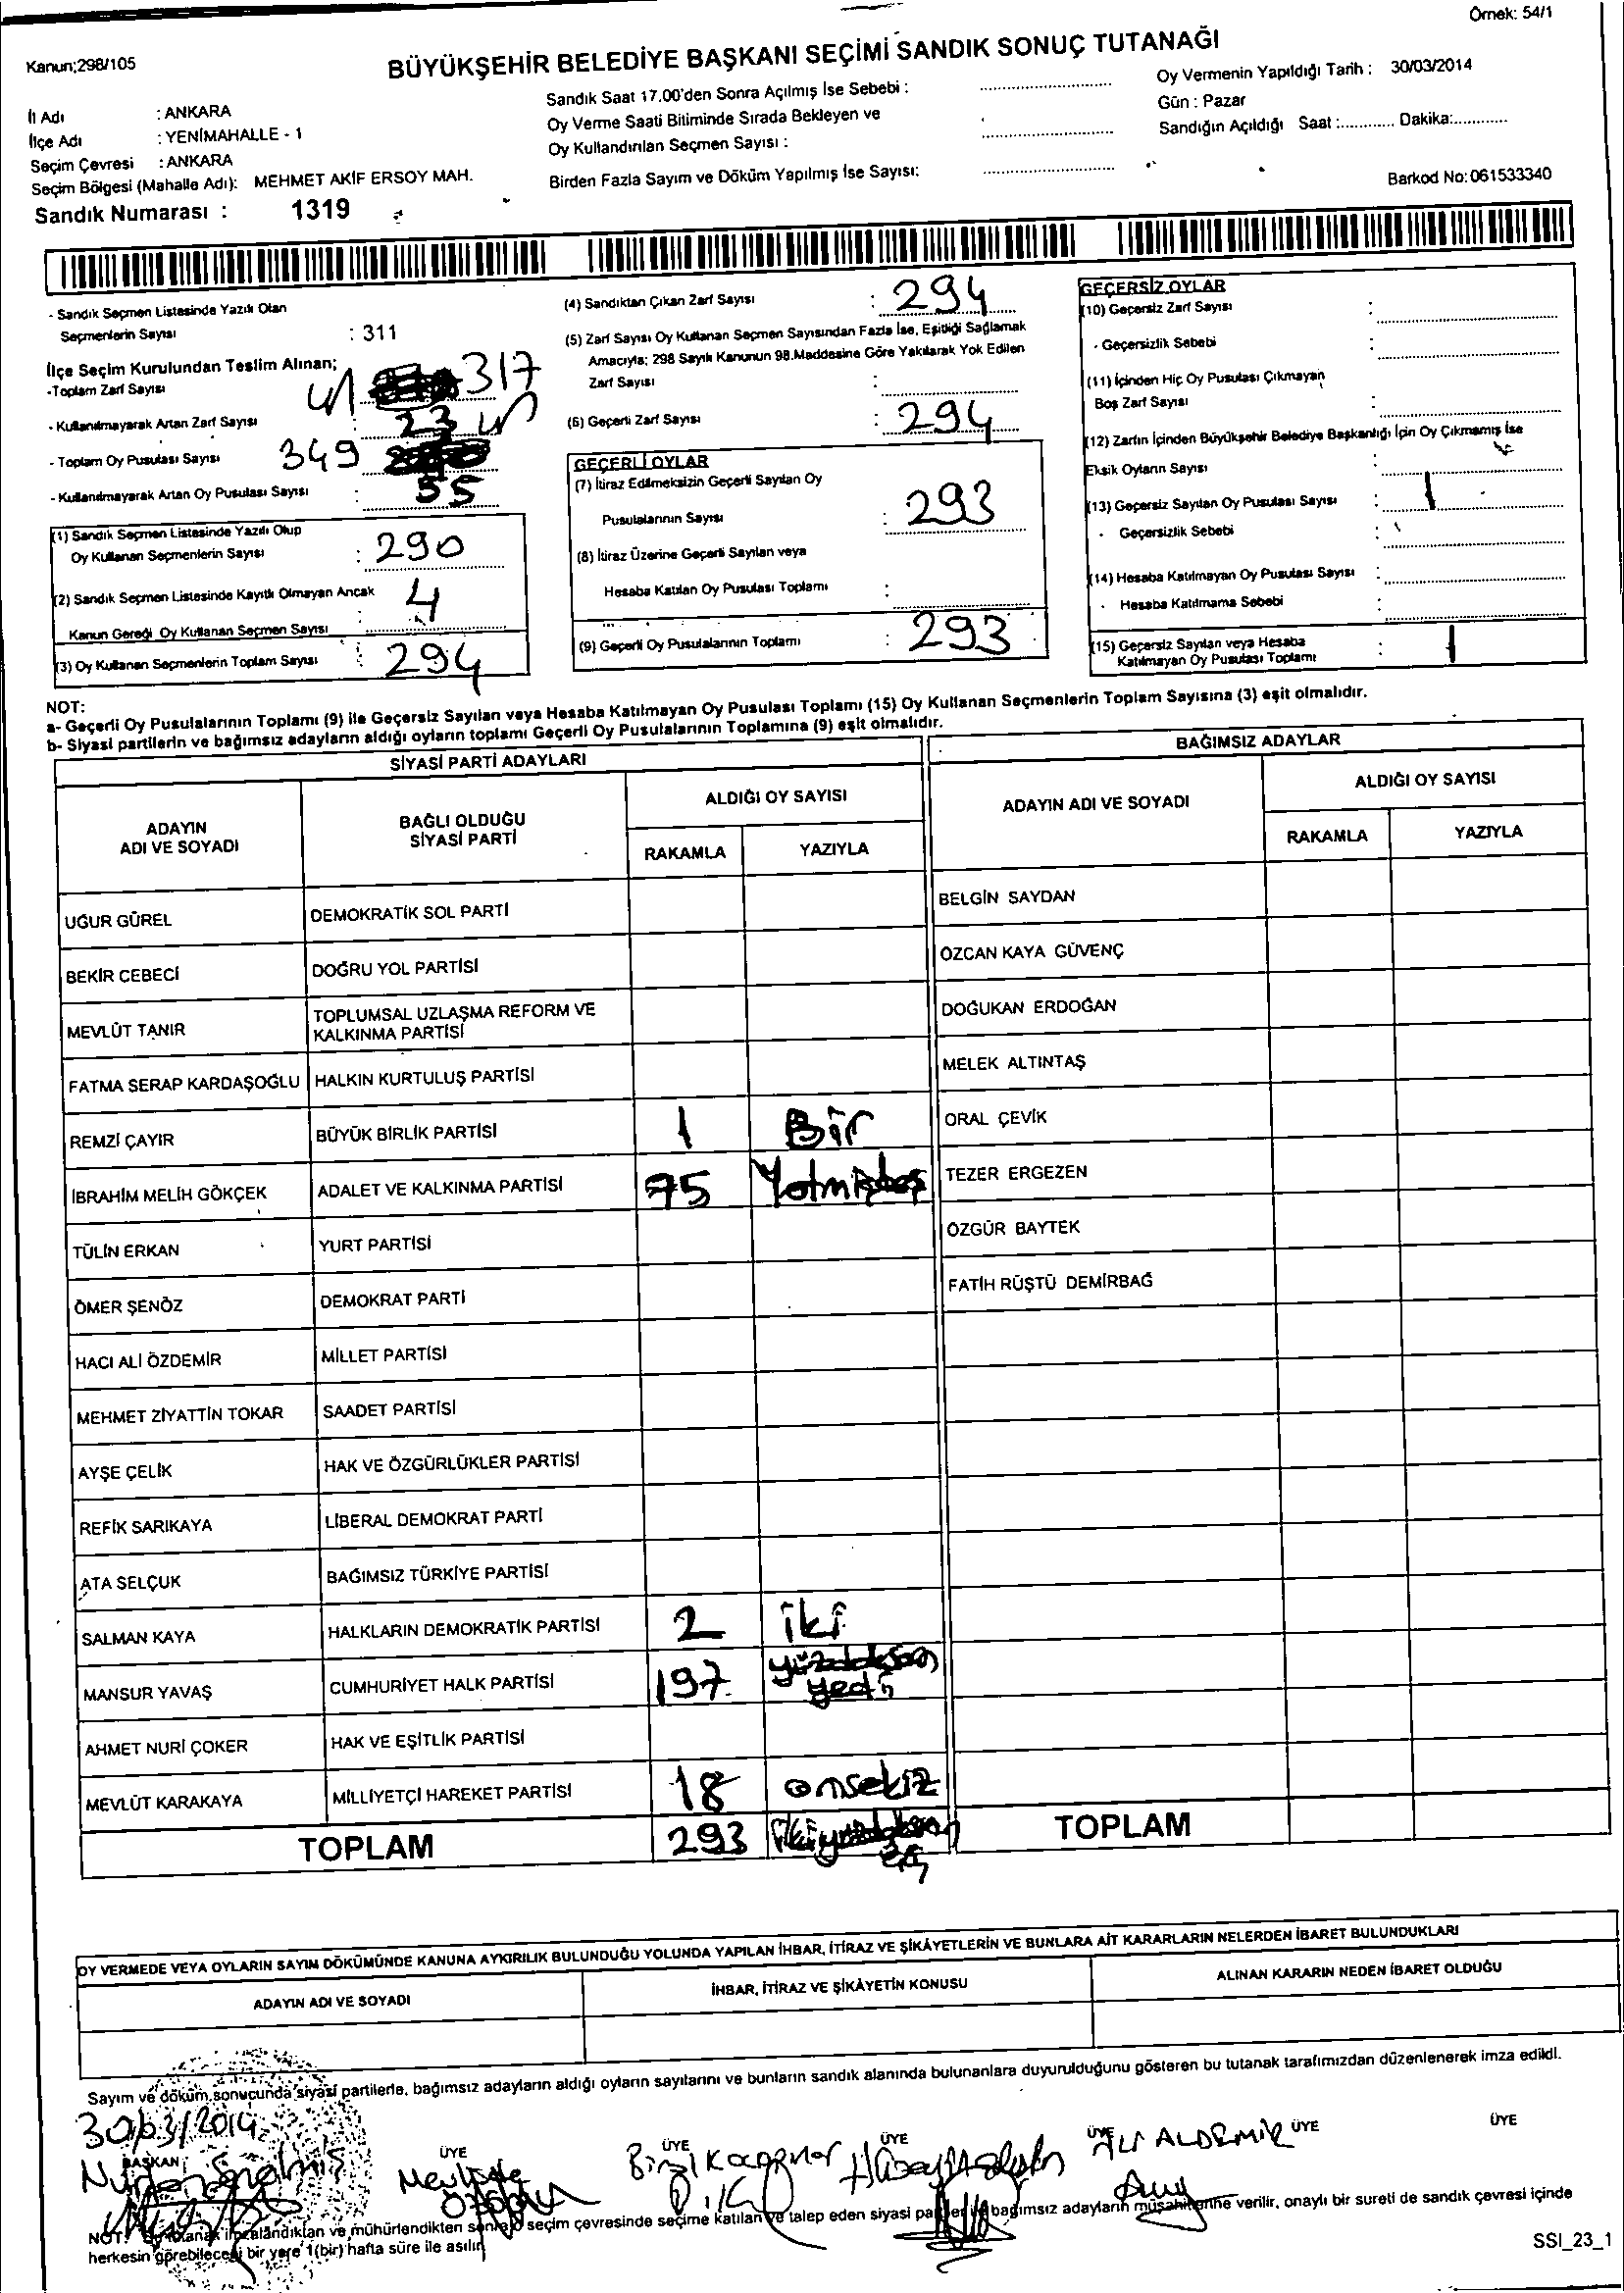 Örnek: 54/1
Kanun;298/105
BÜYÜKŞEHİR BELEDİYE BAŞKANI SEÇİMİ SANDIK SONUÇ TUTANAĞI
İl Adı : ANKARA
İlçe Adı : YENİMAHALLE - 1
Seçim Çevresi : ANKARA
Seçim Bölgesi (Mahalle Adı): MEHMET AKİF ERSOY MAH.
Sandık Numarası : 1319
Sandık Saat 17.00'den Sonra Açılmış İse Sebebi :
Oy Verme Saati Bitiminde Sırada Bekleyen ve
Oy Kullandırılan Seçmen Sayısı :
Birden Fazla Sayım ve Döküm Yapılmış İse Sayısı:
Oy Vermenin Yapıldığı Tarih : 30/03/2014
Gün : Pazar
Sandığın Açıldığı Saat :............ Dakika:............
Barkod No:061533340
- Sandık Seçmen Listesinde Yazılı Olan
Seçmenlerin Sayısı : 311
İlçe Seçim Kurulundan Teslim Alınan;
-Toplam Zarf Sayısı 317
- Kullanılmayarak Artan Zarf Sayısı : 23
- Toplam Oy Pusulası Sayısı 349
- Kullanılmayarak Artan Oy Pusulası Sayısı : 55
(1) Sandık Seçmen Listesinde Yazılı Olup
Oy Kullanan Seçmenlerin Sayısı : 290
(2) Sandık Seçmen Listesinde Kayıtlı Olmayan Ancak
Kanun Gereği Oy Kullanan Seçmen Sayısı : 4
(3) Oy Kullanan Seçmenlerin Toplam Sayısı : 294
(4) Sandıktan Çıkan Zarf Sayısı : 294
(5) Zarf Sayısı Oy Kullanan Seçmen Sayısından Fazla İse, Eşitliği Sağlamak
Amacıyla; 298 Sayılı Kanunun 98.Maddesine Göre Yakılarak Yok Edilen
Zarf Sayısı :
(6) Geçerli Zarf Sayısı : 294
GEÇERLİ OYLAR
(7) İtiraz Edilmeksizin Geçerli Sayılan Oy
Pusulalarının Sayısı : 293
(8) İtiraz Üzerine Geçerli Sayılan veya
Hesaba Katılan Oy Pusulası Toplamı :
(9) Geçerli Oy Pusulalarının Toplamı : 293
GEÇERSİZ OYLAR
(10) Geçersiz Zarf Sayısı :
- Geçersizlik Sebebi :
(11) İçinden Hiç Oy Pusulası Çıkmayan
Boş Zarf Sayısı :
(12) Zarfın İçinden Büyükşehir Belediye Başkanlığı İçin Oy Çıkmamış İse
Eksik Oyların Sayısı :
(13) Geçersiz Sayılan Oy Pusulası Sayısı : 1
- Geçersizlik Sebebi :
(14) Hesaba Katılmayan Oy Pusulası Sayısı :
- Hesaba Katılmama Sebebi :
(15) Geçersiz Sayılan veya Hesaba
Katılmayan Oy Pusulası Toplamı : 1
NOT:
a- Geçerli Oy Pusulalarının Toplamı (9) ile Geçersiz Sayılan veya Hesaba Katılmayan Oy Pusulası Toplamı (15) Oy Kullanan Seçmenlerin Toplam Sayısına (3) eşit olmalıdır.
b- Siyasi partilerin ve bağımsız adayların aldığı oyların toplamı Geçerli Oy Pusulalarının Toplamına (9) eşit olmalıdır.
SİYASİ PARTİ ADAYLARI
ADAYIN
ADI VE SOYADI
BAĞLI OLDUĞU
SİYASİ PARTİ
ALDIĞI OY SAYISI
RAKAMLA YAZIYLA
UĞUR GÜREL DEMOKRATİK SOL PARTİ
BEKİR CEBECİ DOĞRU YOL PARTİSİ
MEVLÜT TANIR TOPLUMSAL UZLAŞMA REFORM VE
KALKINMA PARTİSİ
FATMA SERAP KARDAŞOĞLU HALKIN KURTULUŞ PARTİSİ
REMZİ ÇAYIR BÜYÜK BİRLİK PARTİSİ 1 Bir
İBRAHİM MELİH GÖKÇEK ADALET VE KALKINMA PARTİSİ 75 Yetmişbeş
TÜLİN ERKAN YURT PARTİSİ
ÖMER ŞENÖZ DEMOKRAT PARTİ
HACI ALİ ÖZDEMİR MİLLET PARTİSİ
MEHMET ZİYATTİN TOKAR SAADET PARTİSİ
AYŞE ÇELİK HAK VE ÖZGÜRLÜKLER PARTİSİ
REFİK SARIKAYA LİBERAL DEMOKRAT PARTİ
ATA SELÇUK BAĞIMSIZ TÜRKİYE PARTİSİ
SALMAN KAYA HALKLARIN DEMOKRATİK PARTİSİ 2 iki
MANSUR YAVAŞ CUMHURİYET HALK PARTİSİ 197 yüzdoksan
yedi
AHMET NURİ ÇOKER HAK VE EŞİTLİK PARTİSİ
MEVLÜT KARAKAYA MİLLİYETÇİ HAREKET PARTİSİ 18 onsekiz
TOPLAM 293 ikiyüzdoksan
üç
BAĞIMSIZ ADAYLAR
ADAYIN ADI VE SOYADI
ALDIĞI OY SAYISI
RAKAMLA YAZIYLA
BELGİN SAYDAN
ÖZCAN KAYA GÜVENÇ
DOĞUKAN ERDOĞAN
MELEK ALTINTAŞ
ORAL ÇEVİK
TEZER ERGEZEN
ÖZGÜR BAYTEK
FATİH RÜŞTÜ DEMİRBAĞ
TOPLAM
OY VERMEDE VEYA OYLARIN SAYIM DÖKÜMÜNDE KANUNA AYKIRILIK BULUNDUĞU YOLUNDA YAPILAN İHBAR, İTİRAZ VE ŞİKÂYETLERİN VE BUNLARA AİT KARARLARIN NELERDEN İBARET BULUNDUKLARI
ADAYIN ADI VE SOYADI İHBAR, İTİRAZ VE ŞİKÂYETİN KONUSU ALINAN KARARIN NEDEN İBARET OLDUĞU
Sayım ve döküm sonucunda siyasi partilerle, bağımsız adayların aldığı oyların sayılarını ve bunların sandık alanında bulunanlara duyurulduğunu gösteren bu tutanak tarafımızdan düzenlenerek imza edildi.
30/03/2014
BAŞKAN ÜYE ÜYE ÜYE ÜYE ÜYE ÜYE
ALİ ALDEMİR
NOT: Bu tutanak imzalandıktan ve mühürlendikten sonra o seçim çevresinde seçime katılan ve talep eden siyasi partiler ve bağımsız adayların müşahitlerine verilir, onaylı bir sureti de sandık çevresi içinde
herkesin görebileceği bir yere 1(bir) hafta süre ile asılır.
SSI_23_1